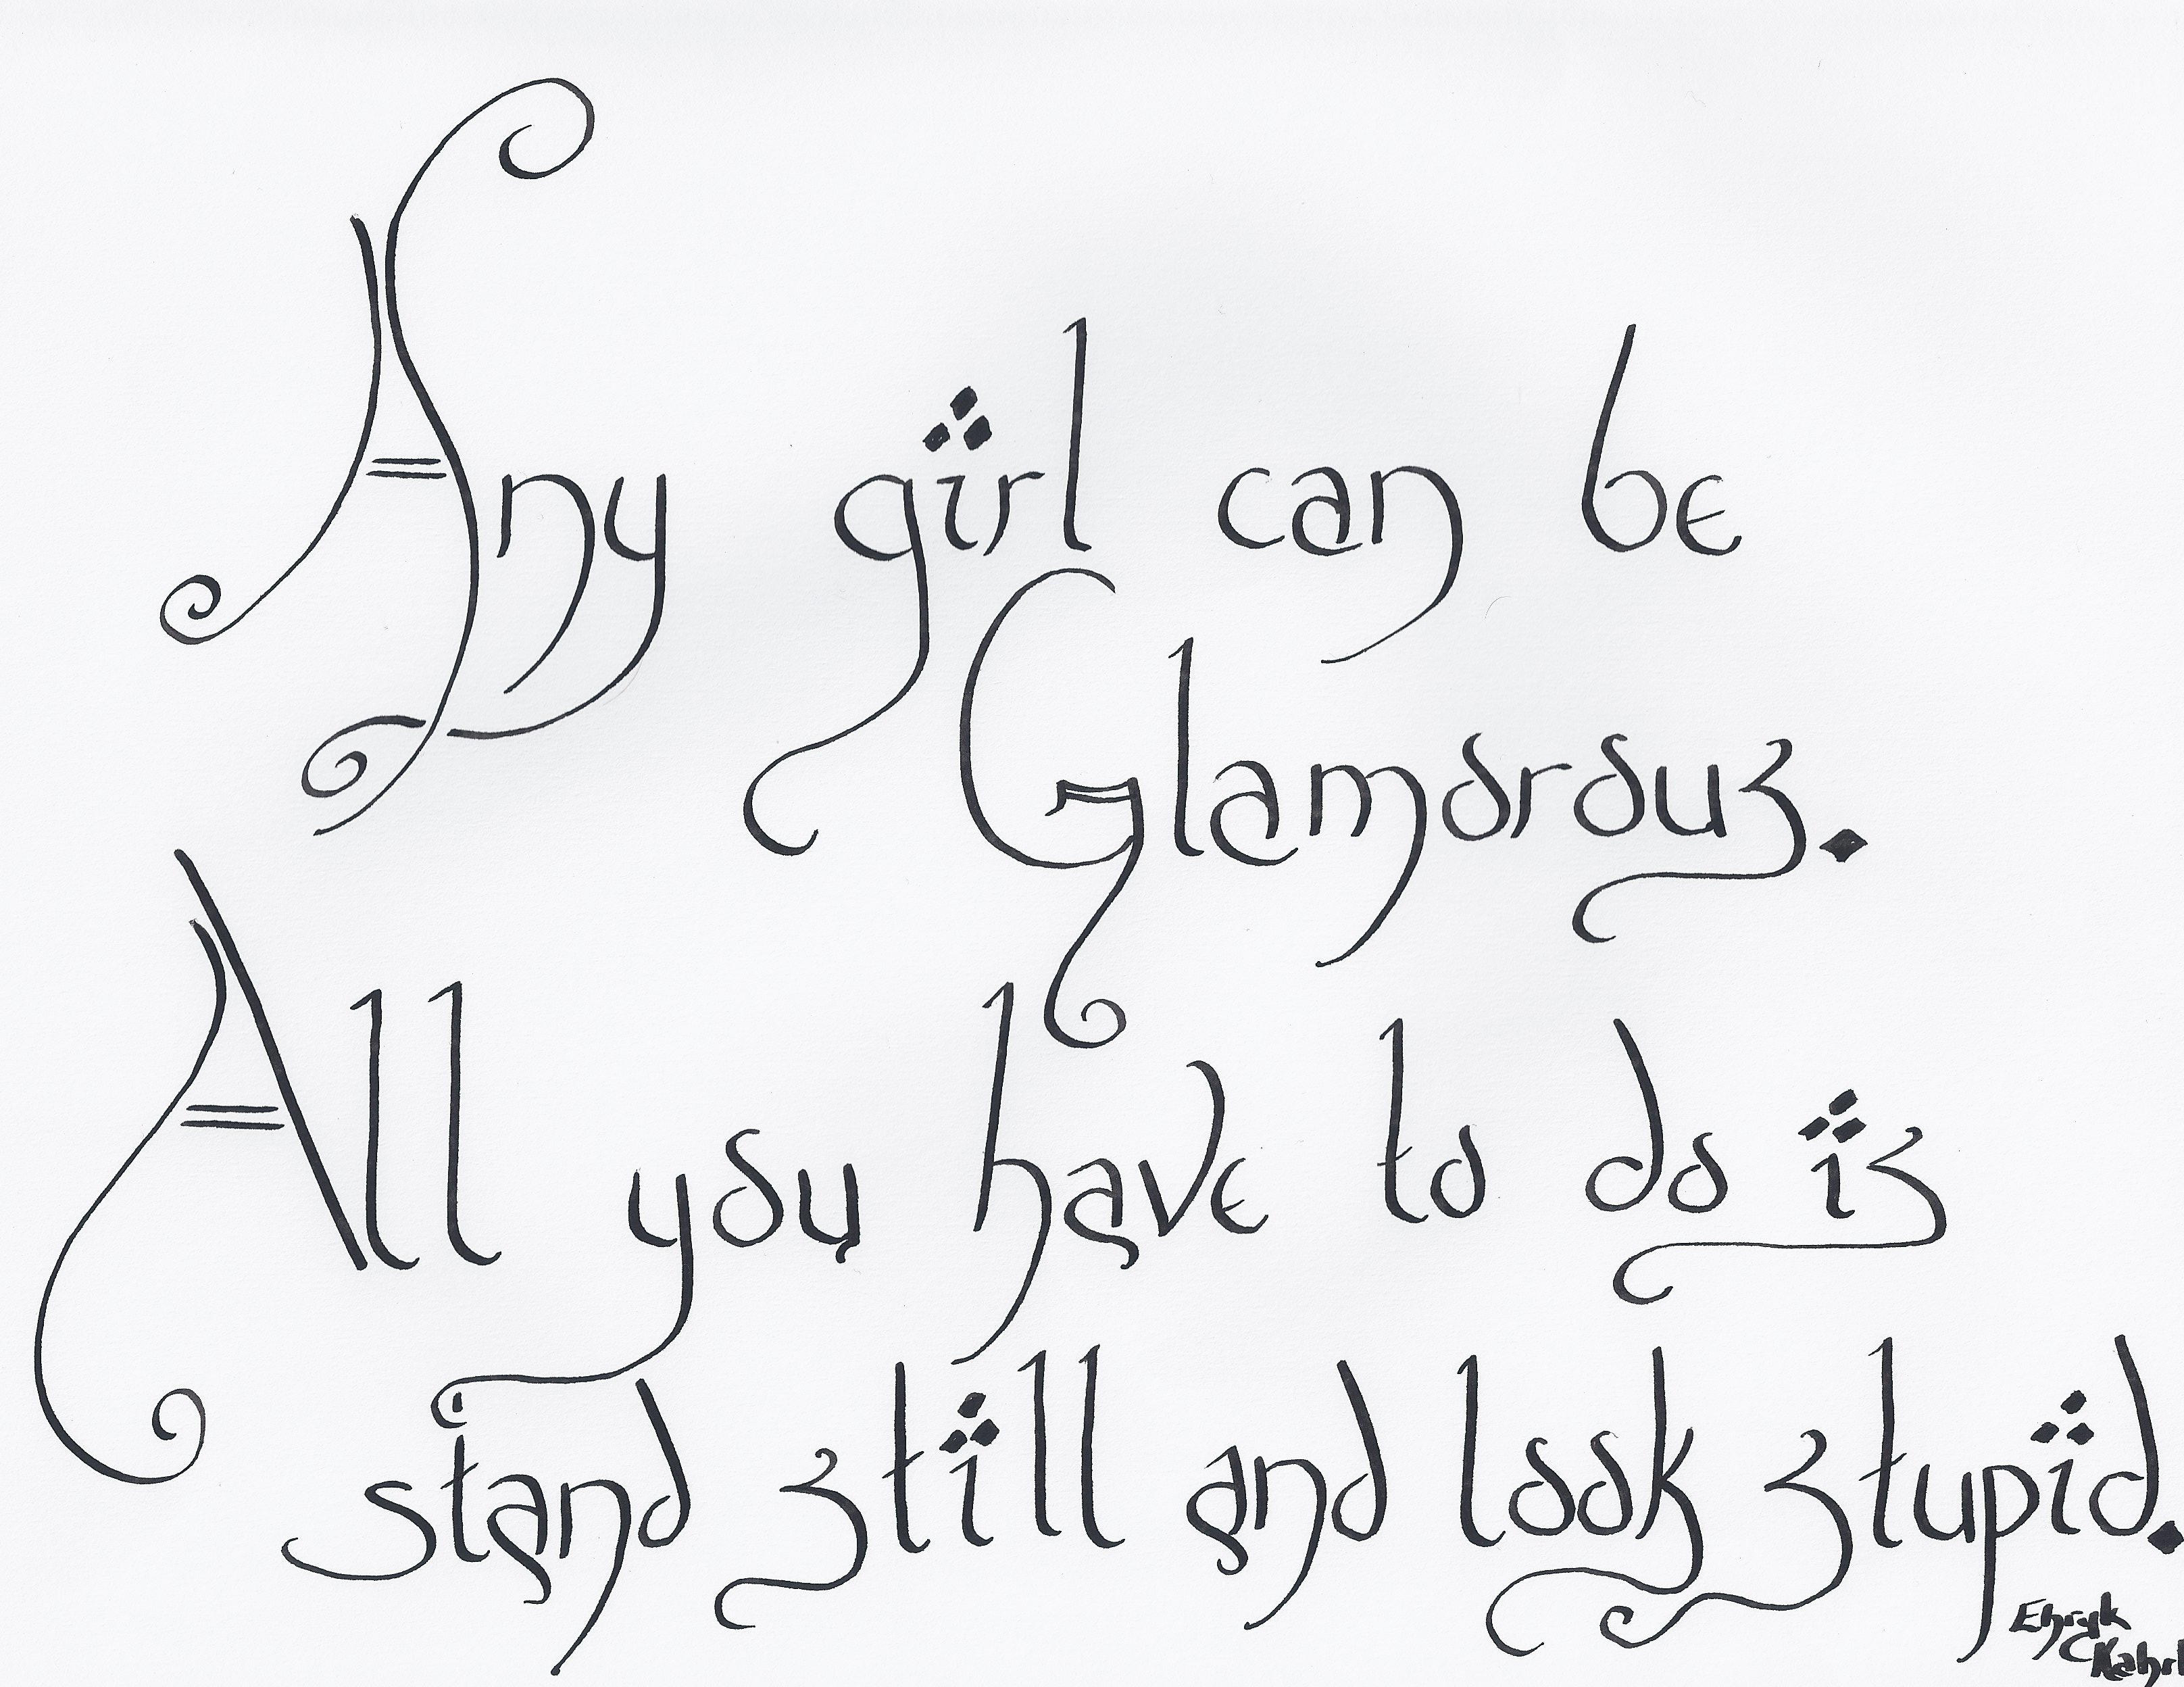 Any girl can be
Glamorous.
All you have to do is
stand still and look stupid.